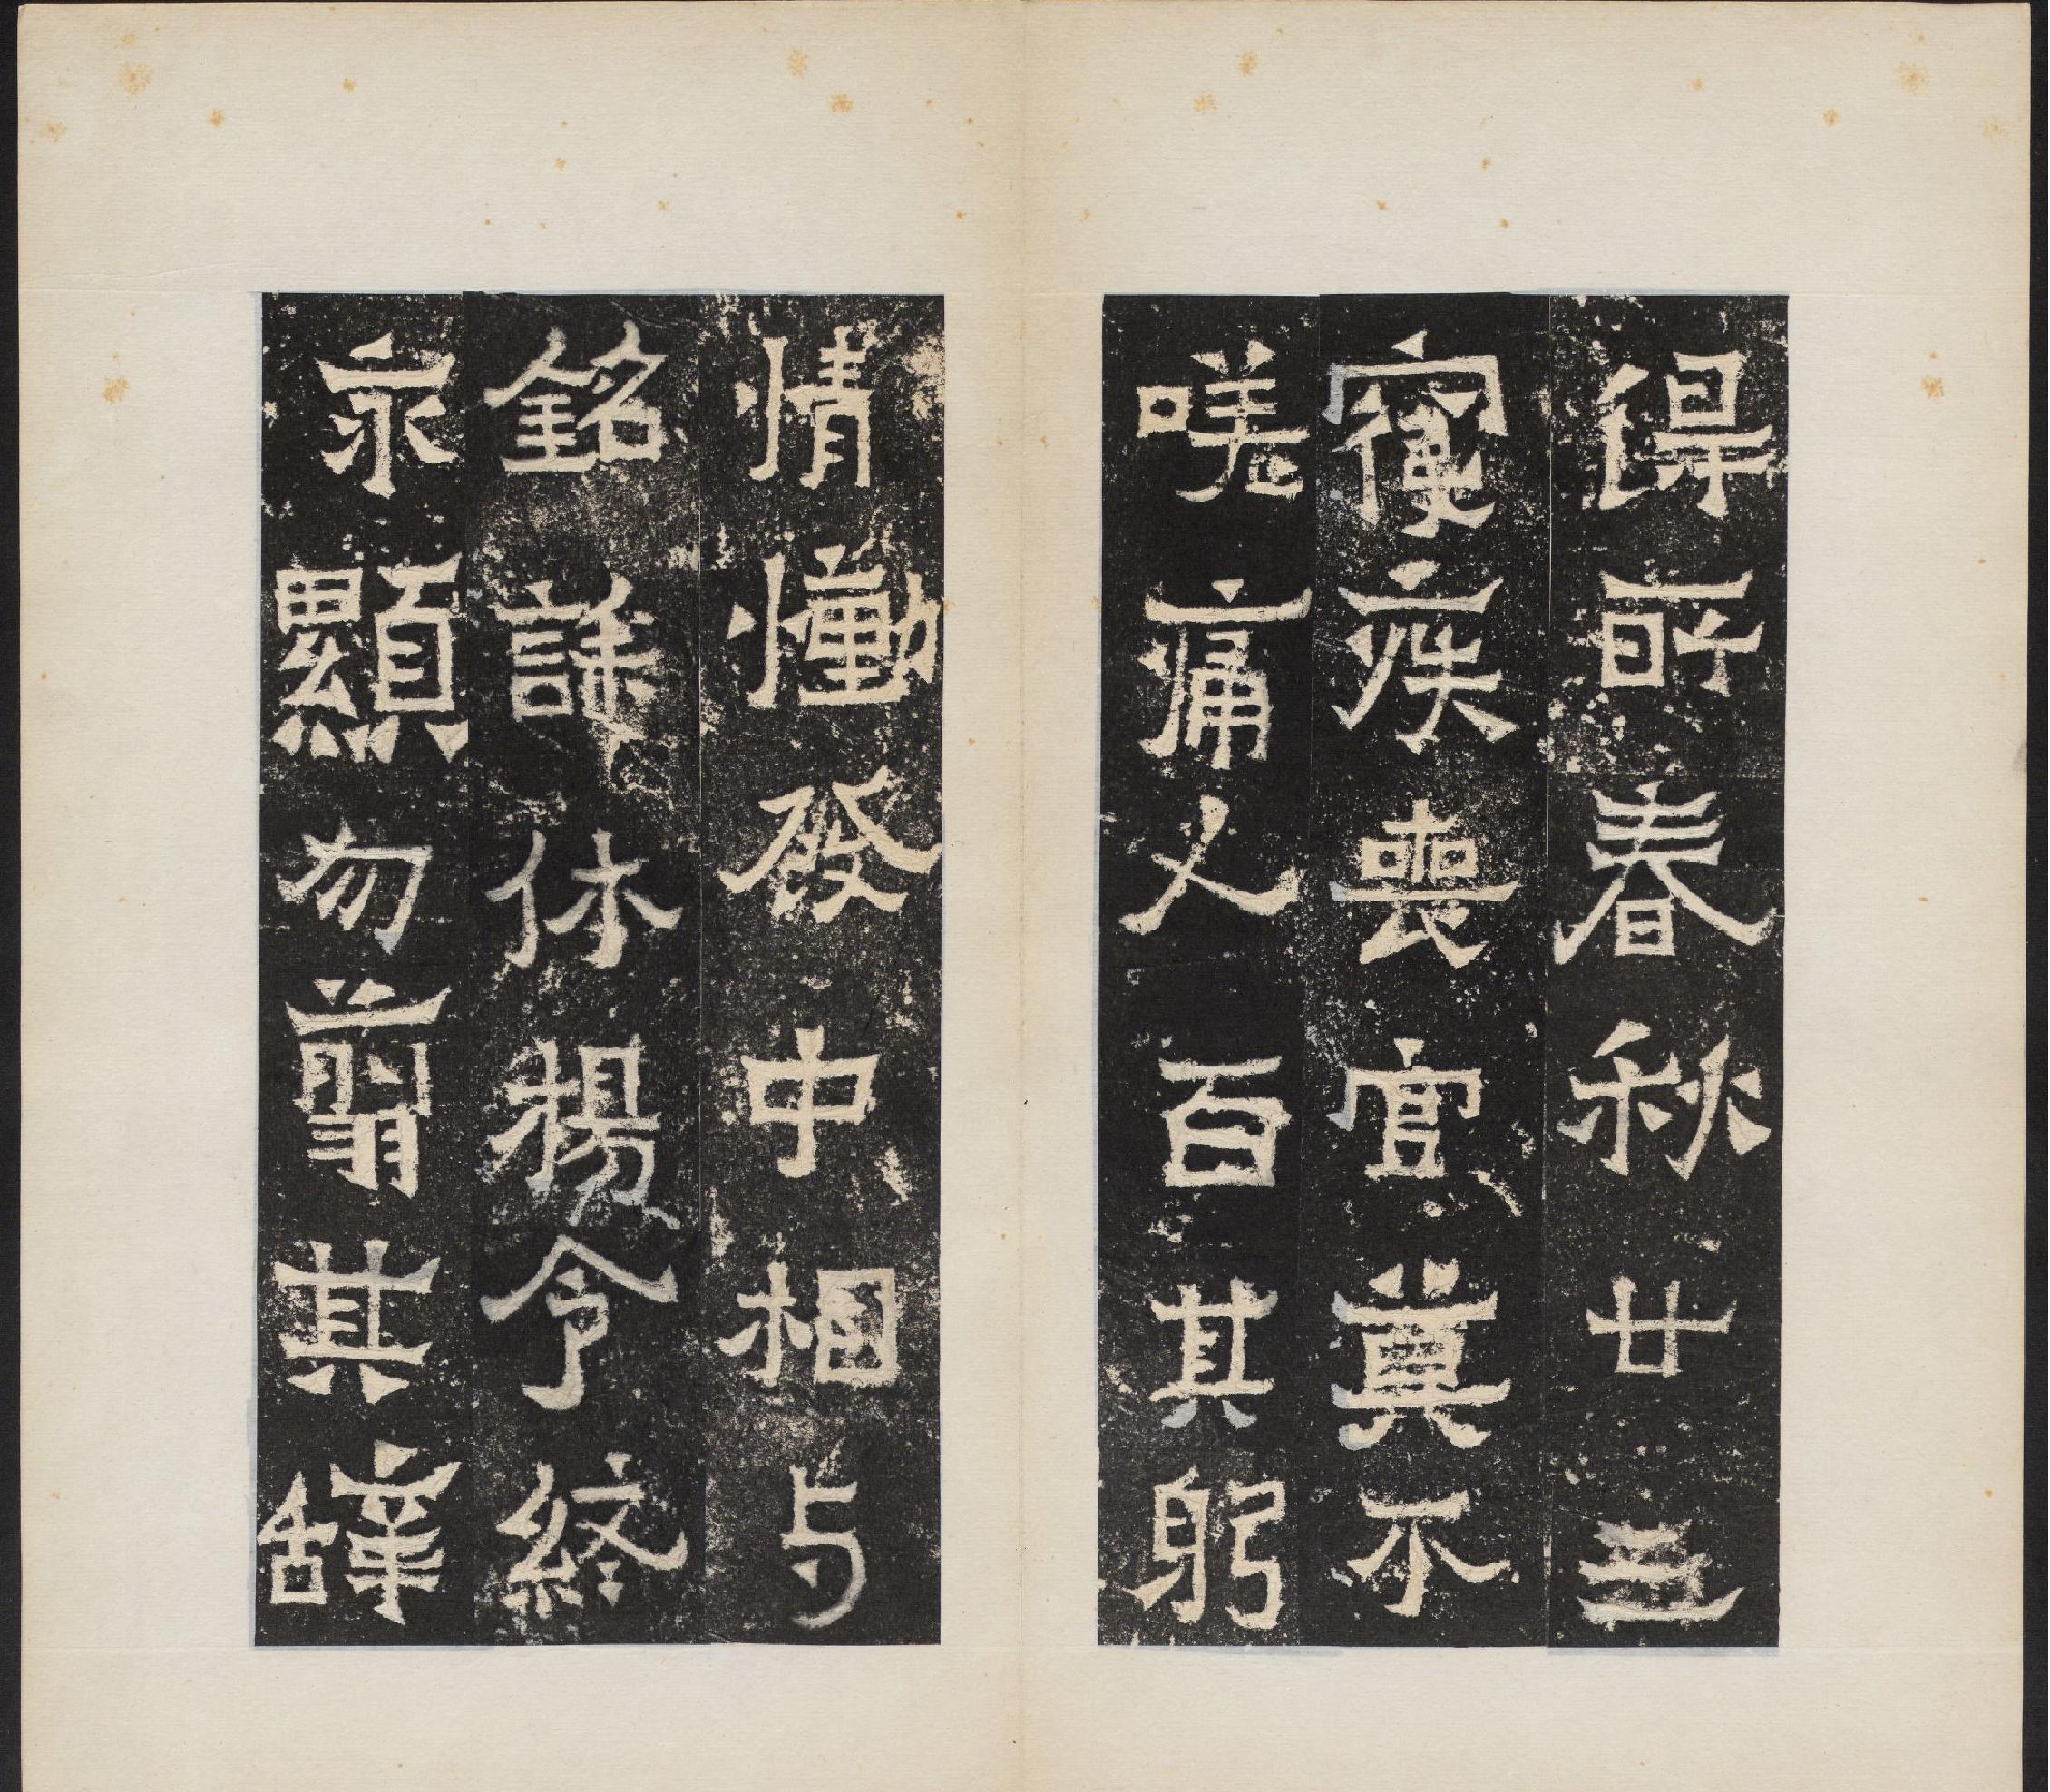 得所春秋廿五
寢疾喪官莫不
嗟痛人百其躬
情慟發中相与
銘誄休揚令終
永顯勿翦其辭